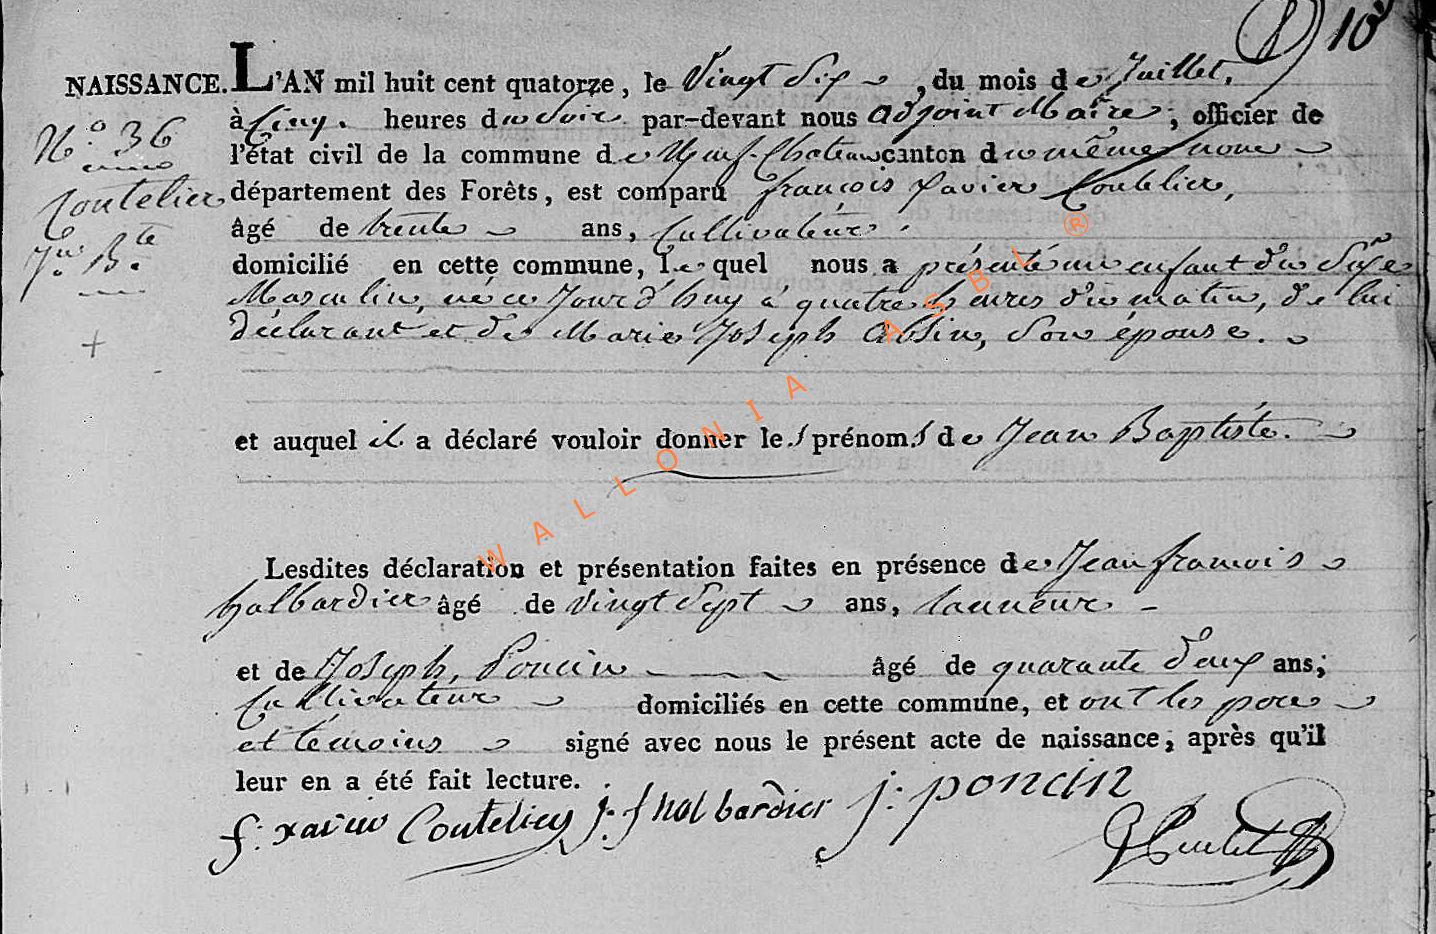 10
NAISSANCE. L'AN mil huit cent quatorze, le Vingt Six, du mois de Juillet,
N.° 36
à Cinq heures du Soir par-devant nous adjoint Maire; officier de
l'état civil de la commune de Neuf-Chateau canton du même nom
Coutelier
département des Forêts, est comparu françois Xavier Coutelier,
Jn. Bte.
âgé de trente ans, Cultivateur,
domicilié en cette commune, Lequel nous a présenté un enfant du Sexe
Masculin, né ce Jourd'huy à quatre heures du matin, de lui
déclarant et de Marie Joseph absin, Son épouse.
et auquel il a déclaré vouloir donner les prénoms de Jean Baptiste.
Lesdites déclaration et présentation faites en présence de Jean francois
halbardier âgé de Vingt Sept ans, tanneur
et de Joseph, Poncin âgé de quarante deux ans;
Cultivateur domiciliés en cette commune, et ont les pere
et témoins signé avec nous le présent acte de naissance, après qu'il
leur en a été fait lecture.
f: xavier Coutelier j: f halbardier j: poncin
WALLONIA ASBL ®